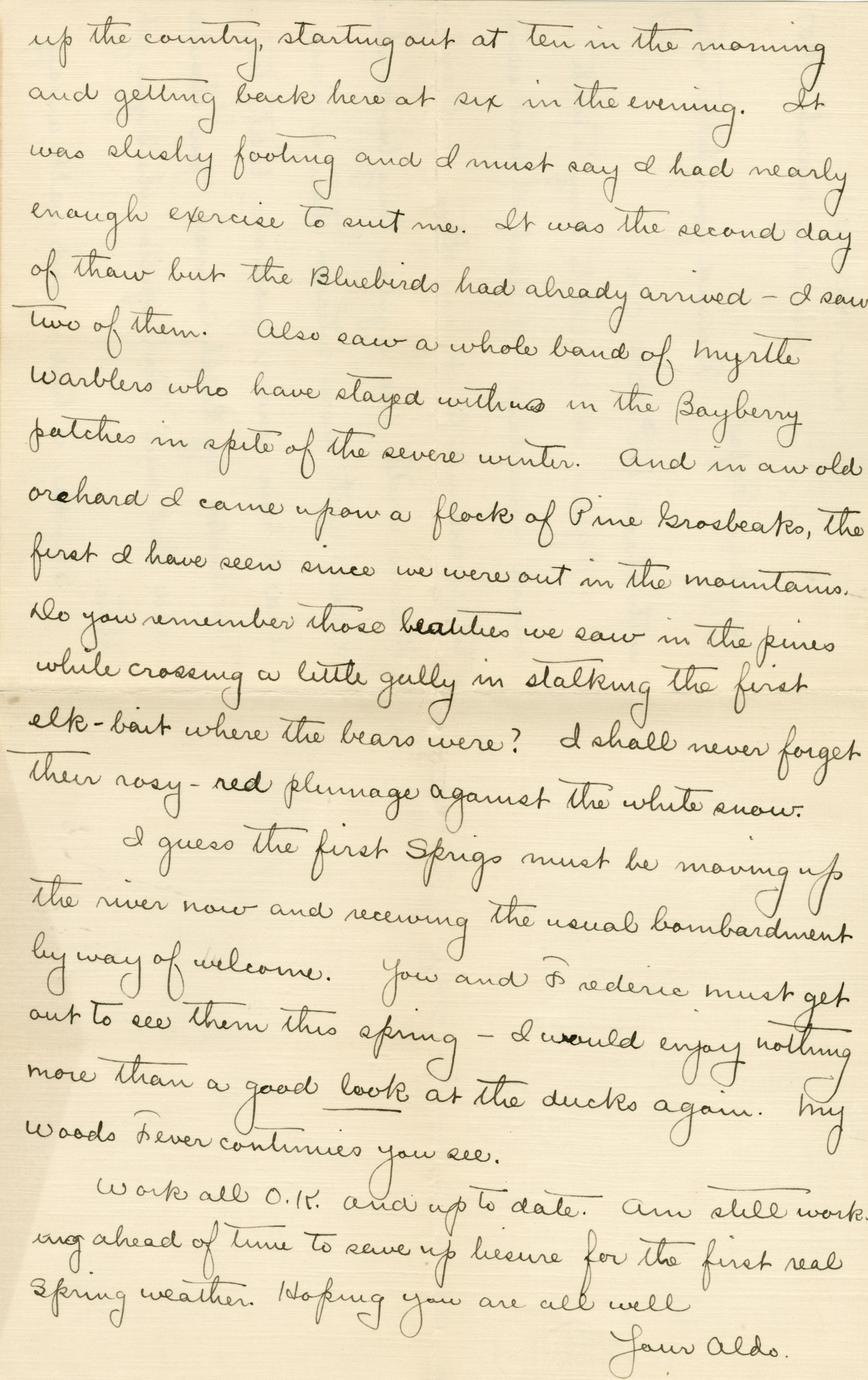 up the country, starting out at ten in the morning
and getting back here at six in the evening. It
was slushy footing and I must say I had nearly
enough exercise to suit me. It was the second day
of thaw but the Bluebirds had already arrived – I saw
two of them. Also saw a whole band of Myrtle
Warblers who have stayed with us in the Bayberry
patches in spite of the severe winter. And in an old
orchard I came upon a flock of Pine Grosbeaks, the
first I have seen since we were out in the mountains.
Do you remember those beauties we saw in the pines
while crossing a little gully in stalking the first
elk-bait where the bears were? I shall never forget
their rosy-red plumage against the white snow.
I guess the first Sprigs must be moving up
the river now and receiving the usual bombardment
by way of welcome. You and Frederic must get
out to see them this spring – I would enjoy nothing
more than a good look at the ducks again. My
Woods Fever continues you see.
Work all O.K. and up to date. Am still work-
ing ahead of time to save up liesure for the first real
Spring weather. Hoping you are all well
Your Aldo.